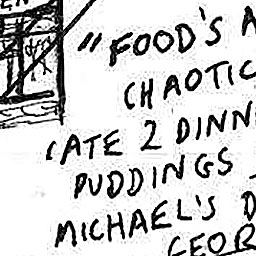 "FOOD'S A
CHAOTIC
'ATE 2 DINN
PUDDINGS
MICHAEL'S D
GEOR